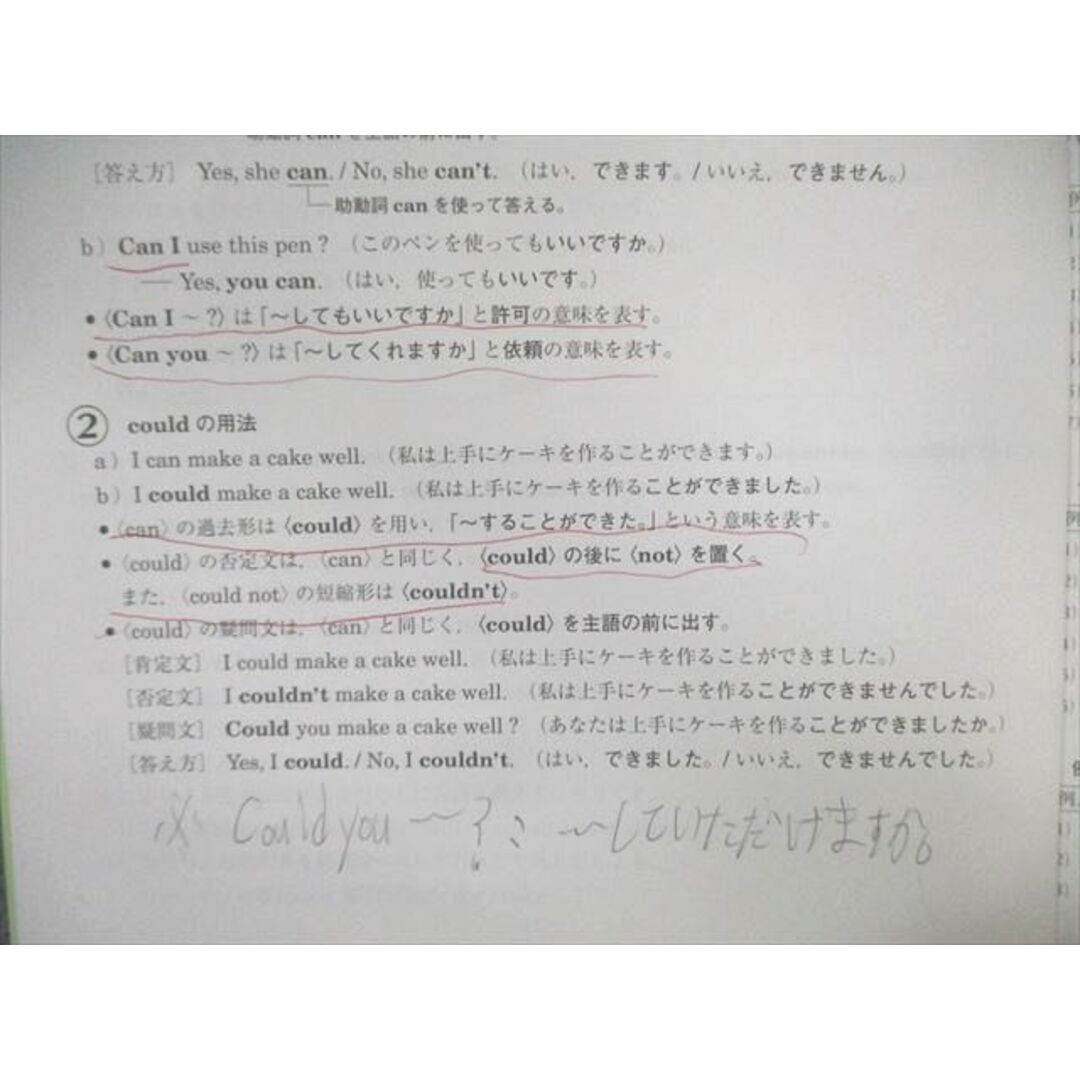 [答え方] Yes, she can. / No, she can't. (はい，できます。/ いいえ，できません。)
助動詞 can を使って答える。
b) Can I use this pen? (このペンを使ってもいいですか。)
── Yes, you can. (はい，使ってもいいです。)
●〈Can I ～ ?〉は「～してもいいですか」と許可の意味を表す。
●〈Can you ～ ?〉は「～してくれますか」と依頼の意味を表す。
② could の用法
a) I can make a cake well. (私は上手にケーキを作ることができます。)
b) I could make a cake well. (私は上手にケーキを作ることができました。)
●〈can〉の過去形は〈could〉を用い，「～することができた。」という意味を表す。
●〈could〉の否定文は，〈can〉と同じく，〈could〉の後に〈not〉を置く。
また，〈could not〉の短縮形は〈couldn't〉。
●〈could〉の疑問文は，〈can〉と同じく，〈could〉を主語の前に出す。
[肯定文] I could make a cake well. (私は上手にケーキを作ることができました。)
[否定文] I couldn't make a cake well. (私は上手にケーキを作ることができませんでした。)
[疑問文] Could you make a cake well? (あなたは上手にケーキを作ることができましたか。)
[答え方] Yes, I could. / No, I couldn't. (はい，できました。/ いいえ，できませんでした。)
※ Could you ～ ? : ～していただけますか。